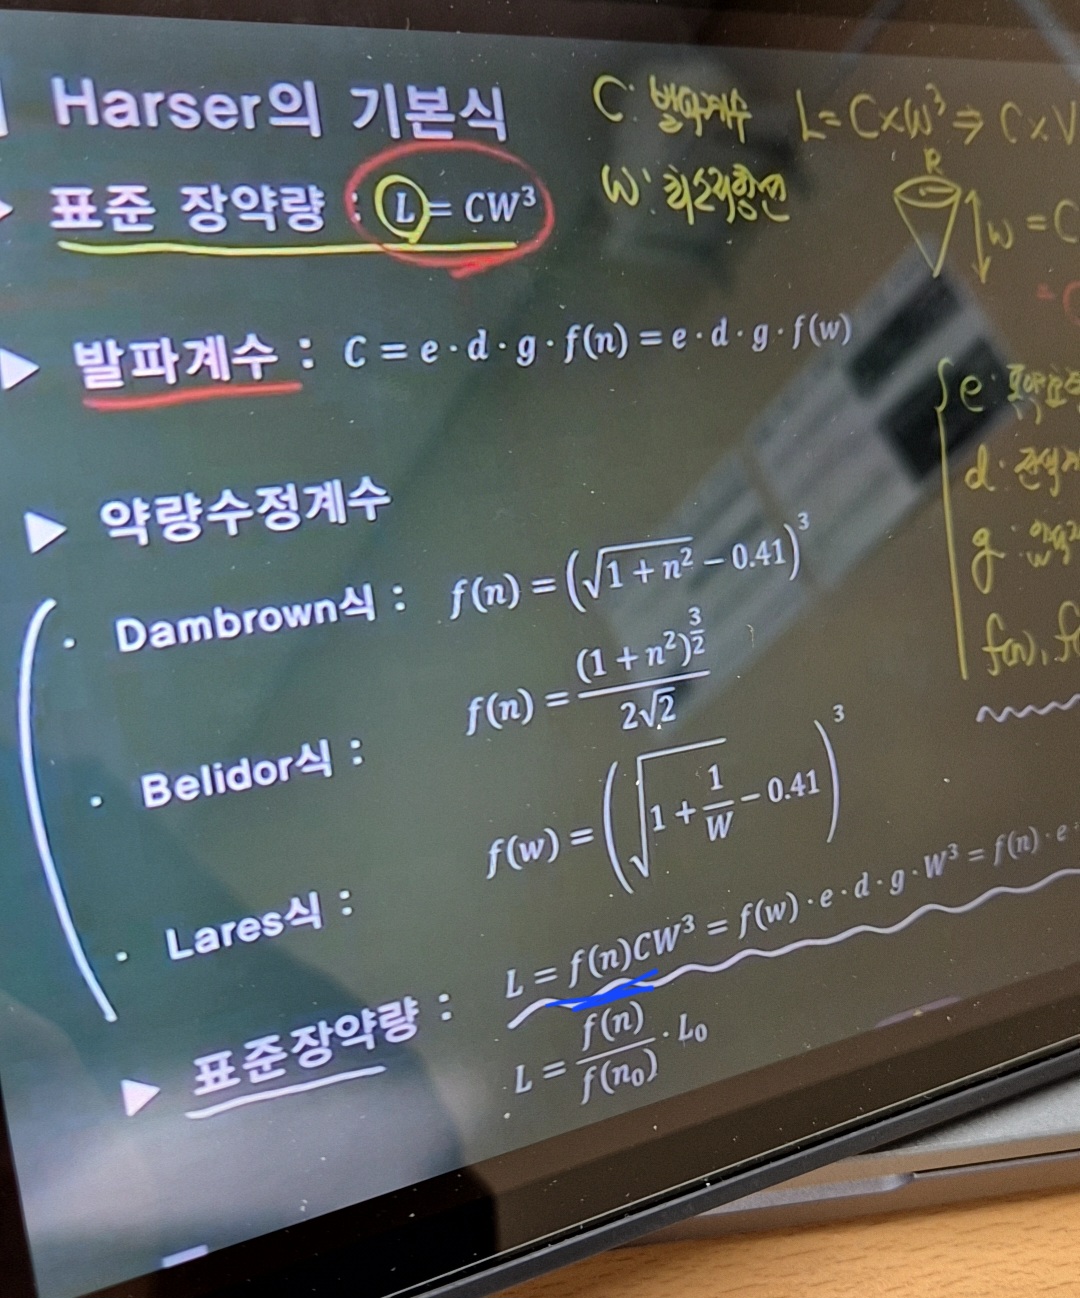 Harser의 기본식
C: 발파계수
L=C×W³ ⇒ C×V
표준 장약량 : L = CW³
W: 최소저항선
R
w = C
발파계수 : C = e · d · g · f(n) = e · d · g · f(w)
e:
d:
g:
f(n), f(
약량수정계수
· Dambrown식 : f(n) = (√(1 + n²) − 0.41)³
f(n) = (1 + n²)^(3/2) / 2√2
· Belidor식 :
f(w) = (√(1 + 1/W) − 0.41)³
· Lares식 :
L = f(n)CW³ = f(w) · e · d · g · W³ = f(n) · e ·
표준장약량 :
L = f(n)/f(n₀) · L₀